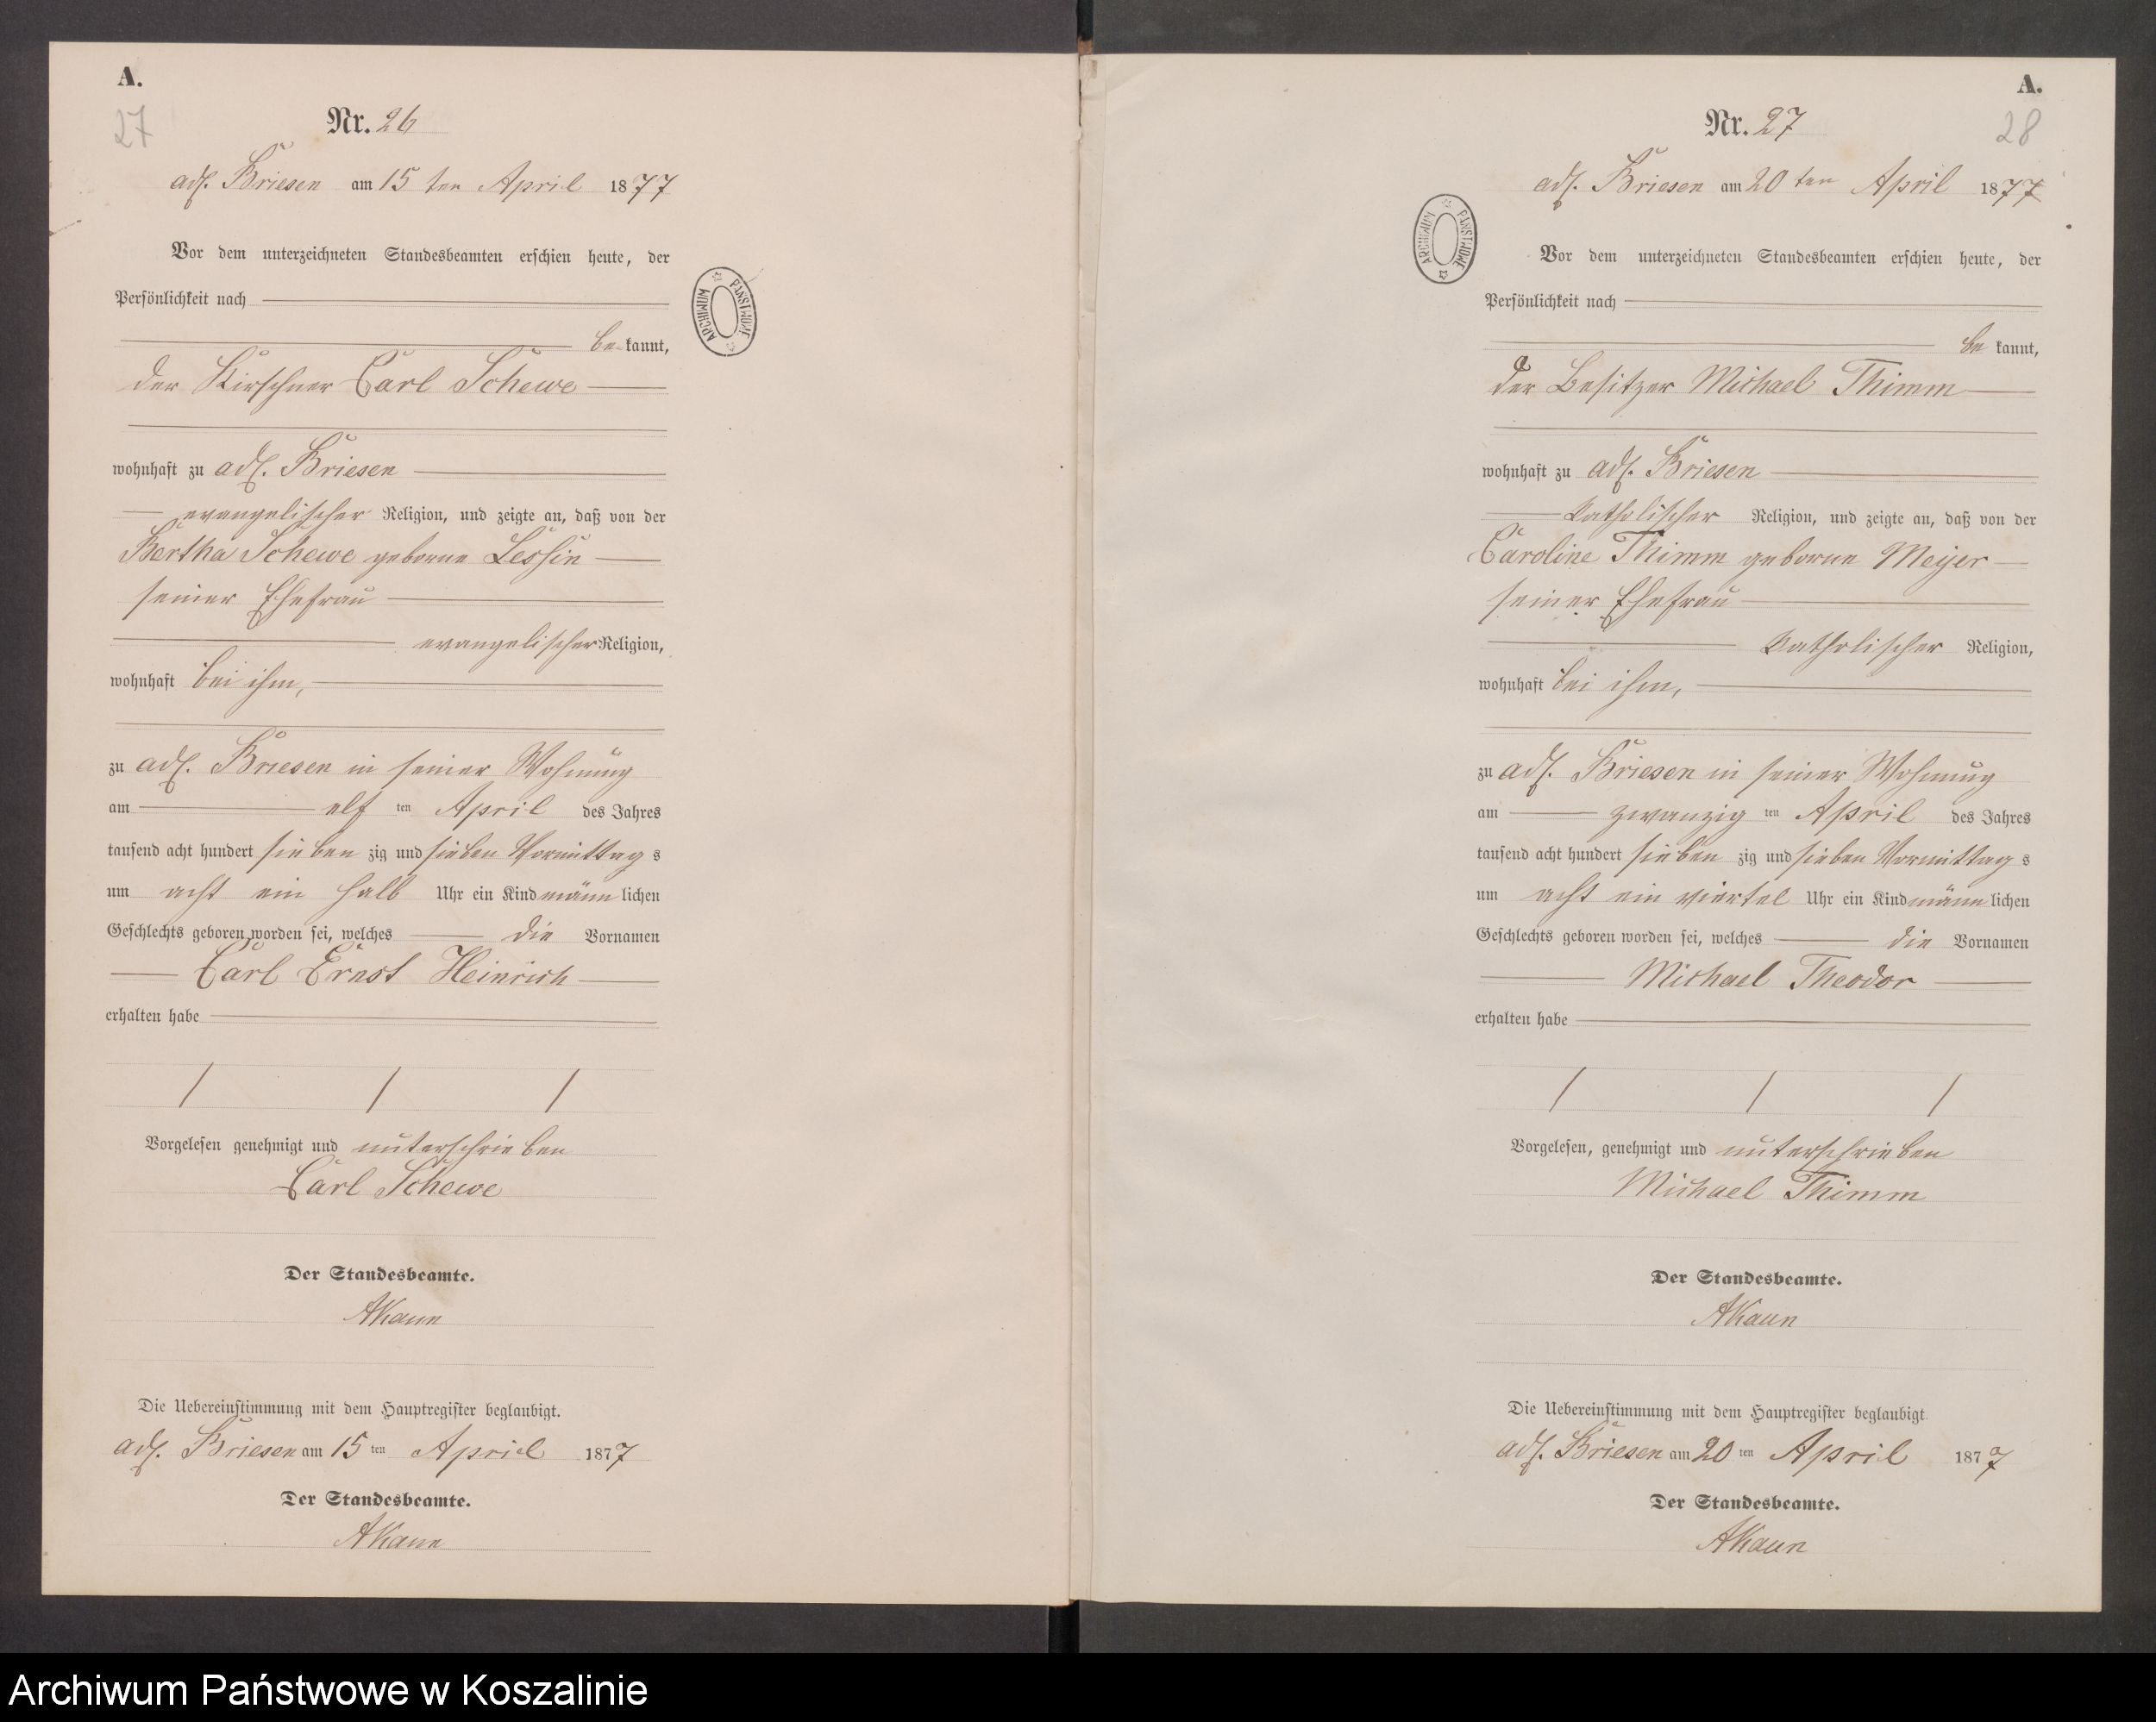 A.
27
Nr. 26
adl. Briesen am 15 ten April 1877
Vor dem unterzeichneten Standesbeamten erschien heute, der
Persönlichkeit nach
be kannt,
der Kirschner Carl Schewe
wohnhaft zu adl. Briesen
evangelischer Religion, und zeigte an, daß von der
Bertha Schewe geborne Lessin
seiner Ehefrau
evangelischer Religion,
wohnhaft bei ihm,
zu adl. Briesen in seiner Wohnung
am elf ten April des Jahres
tausend acht hundert sieben zig und sieben Vormittag s
um acht ein halb Uhr ein Kind männ lichen
Geschlechts geboren worden sei, welches die Vornamen
Carl Ernst Heinrich
erhalten habe
Vorgelesen genehmigt und unterschrieben
Carl Schewe
Der Standesbeamte.
AKaun
Die Uebereinstimmung mit dem Hauptregister beglaubigt.
adl. Briesen am 15 ten April 1877
Der Standesbeamte.
AKaun
ARCHIWUM PAŃSTWOWE
A.
28
Nr. 27
adl. Briesen am 20 ten April 1877
Vor dem unterzeichneten Standesbeamten erschien heute, der
Persönlichkeit nach
be kannt,
der Besitzer Michael Thimm
wohnhaft zu adl. Briesen
katholischer Religion, und zeigte an, daß von der
Caroline Thimm geborne Meyer
seiner Ehefrau
katholischer Religion,
wohnhaft bei ihm,
zu adl. Briesen in seiner Wohnung
am zwanzig ten April des Jahres
tausend acht hundert sieben zig und sieben Vormittag s
um acht ein viertel Uhr ein Kind männ lichen
Geschlechts geboren worden sei, welches die Vornamen
Michael Theodor
erhalten habe
Vorgelesen, genehmigt und unterschrieben
Michael Thimm
Der Standesbeamte.
AKaun
Die Uebereinstimmung mit dem Hauptregister beglaubigt.
adl. Briesen am 20 ten April 1877
Der Standesbeamte.
AKaun
ARCHIWUM PAŃSTWOWE
Archiwum Państwowe w Koszalinie